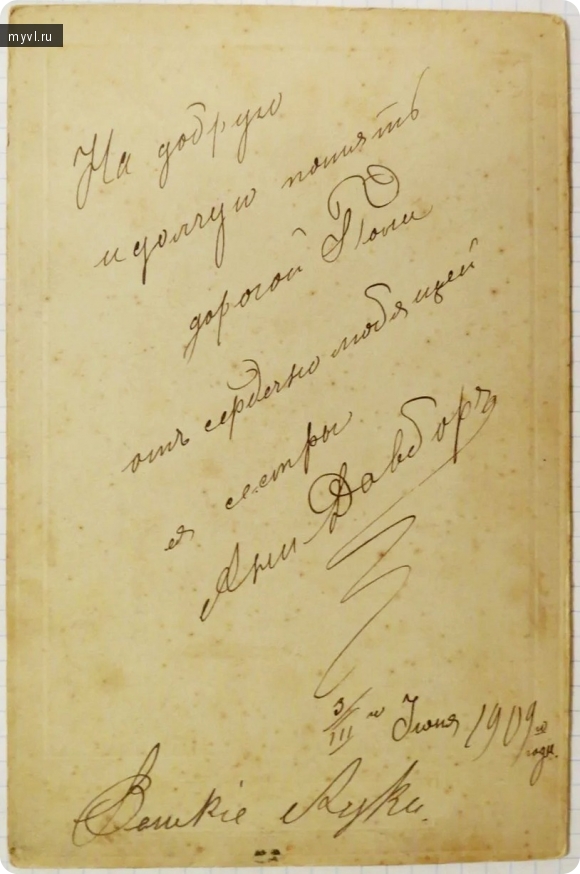 myvl.ru
На добрую
и долгую память
дорогой Поли
отъ сердечно любящей
ея сестры
Ани Довборъ
3/III го Июня 1909 го года.
Великіе Луки.